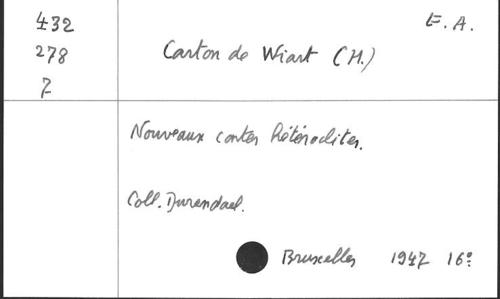 432
E. A.
278
Carton de Wiart (H.)
7
Nouveaux contes hétéroclites.
Coll. Durendael.
Bruxelles 1947 16º